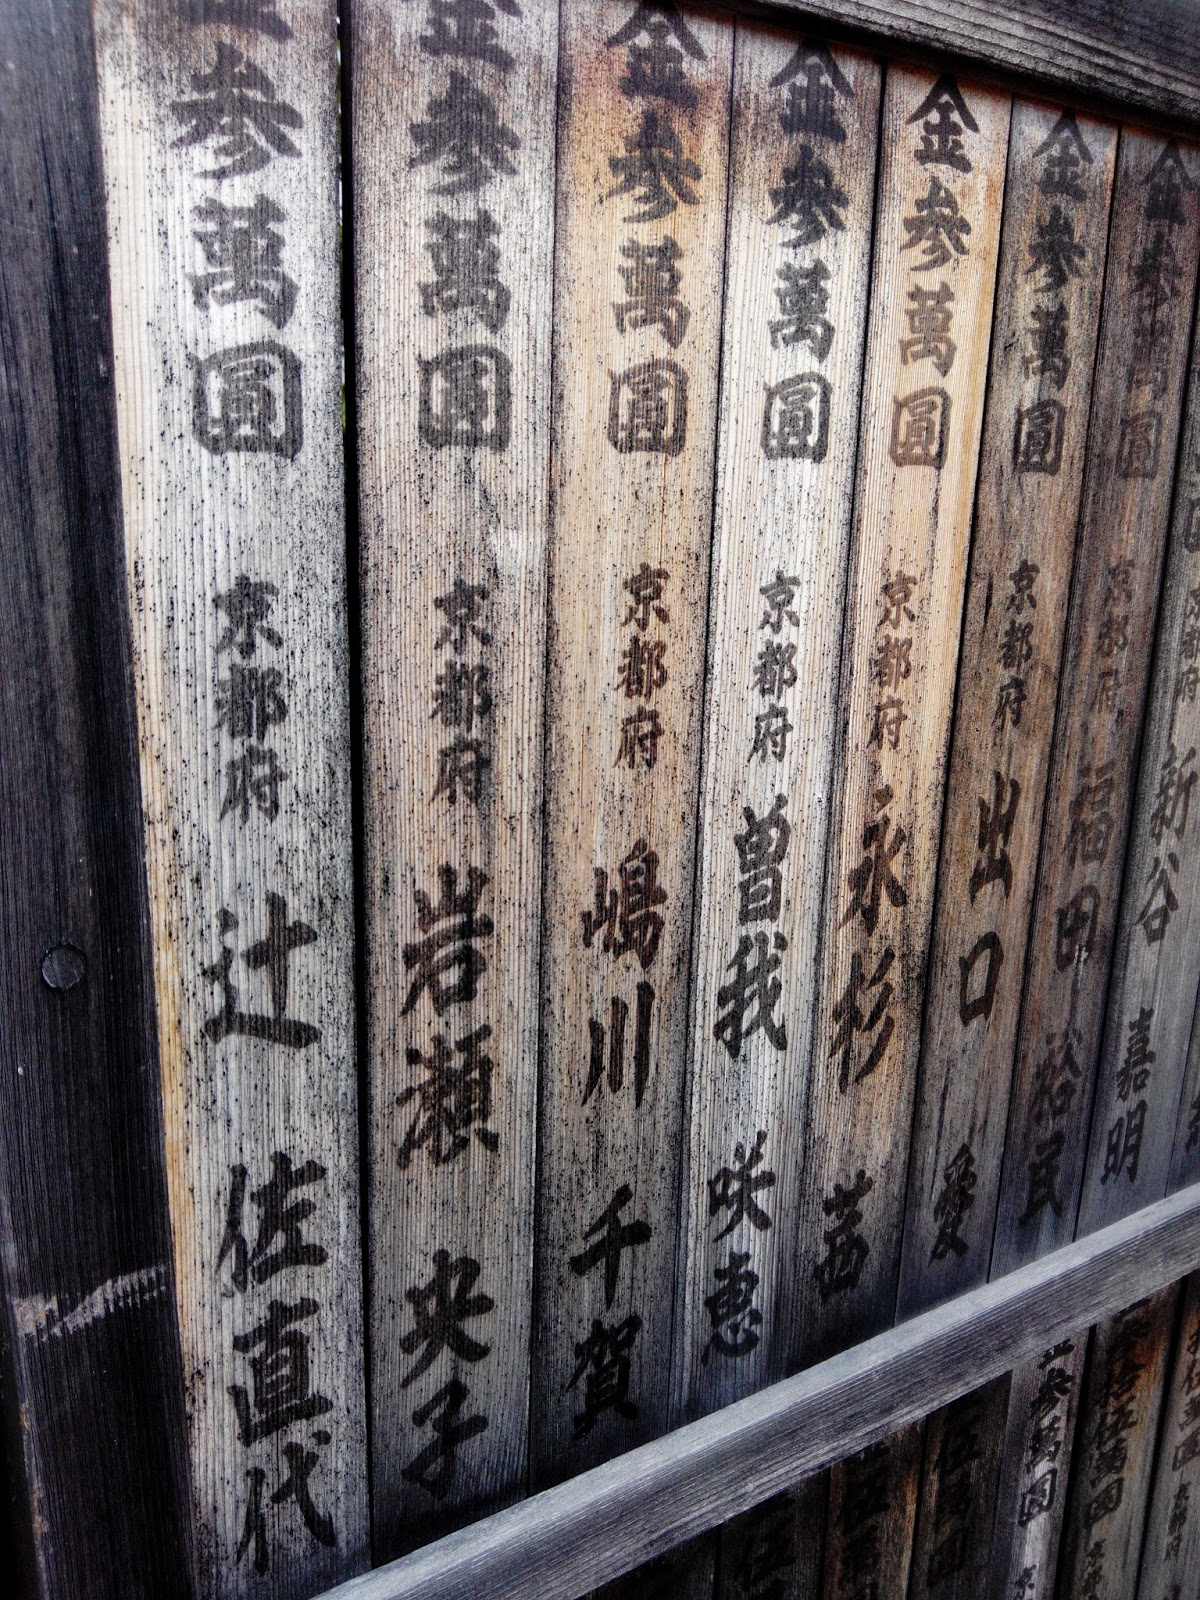 京都府 新谷 嘉明
金参萬圓 京都府 福田 裕民
金参萬圓 京都府 出口 愛
金参萬圓 京都府 永杉 茜
金参萬圓 京都府 曽我 咲恵
金参萬圓 京都府 嶋川 千賀
金参萬圓 京都府 岩瀬 央子
金参萬圓 京都府 辻 佐直代
伍萬圓 京都府
拾伍萬圓 京都
金参萬圓 京
伍萬圓
伍
伍